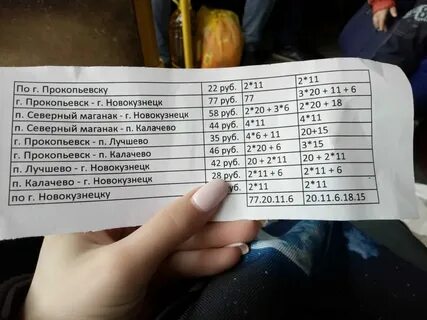 По г. Прокопьевску 22 руб. 2*11 2*11
г. Прокопьевск - г. Новокузнецк 77 руб. 77 3*20 + 11 + 6
п. Северный маганак - г. Новокузнецк 58 руб. 2*20 + 3*6 2*20 + 18
п. Северный маганак - п. Калачево 44 руб. 4*11 4*11
г. Прокопьевск - п. Лучшево 35 руб. 4*6 + 11 20+15
г. Прокопьевск - п. Калачево 46 руб. 2*20 + 6 3*15
п. Лучшево - г. Новокузнецк 42 руб. 20 + 2*11 20 + 2*11
п. Калачево - г. Новокузнецк 28 руб. 2*11 + 6 2*11 + 6
по г. Новокузнецку руб. 2*11 2*11
77.20.11.6 20.11.6.18.15